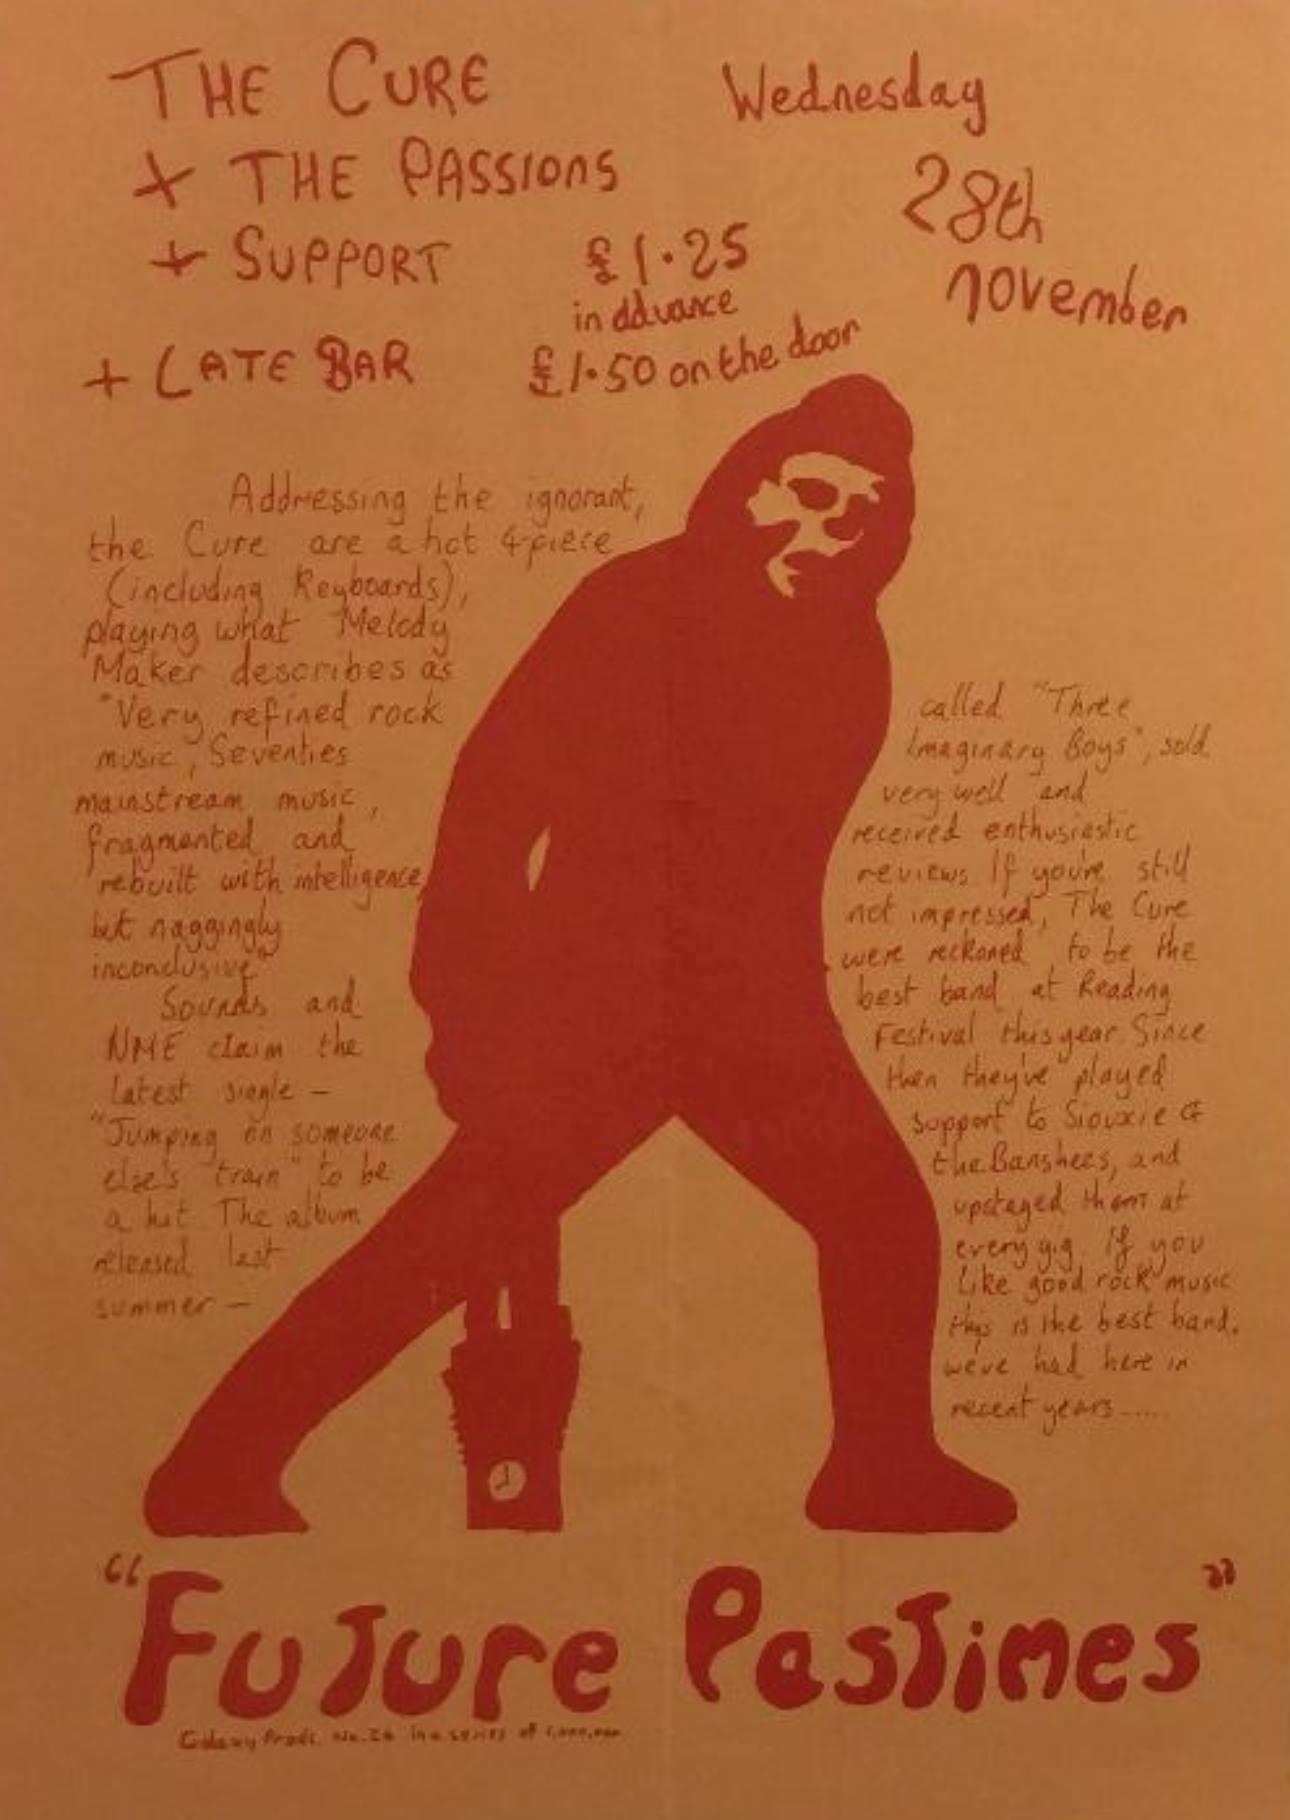 THE CURE
+ THE PASSIONS
+ SUPPORT
+ LATE BAR
Wednesday
28th
november
£1.25
in ddvance
£1.50 on the door
Addressing the ignorant,
the Cure are a hot 4-piece
(including Keyboards),
playing what Melody
Maker describes as
"Very refined rock
music, Seventies
mainstream music,
fragmented and
rebuilt with intelligence,
but naggingly
inconclusive"
Sounds and
NME claim the
latest single –
"Jumping on someone
else's train" to be
a hit. The album
released last
summer –
called "Three
Imaginary Boys", sold
very well and
received enthusiastic
reviews If you're still
not impressed, The Cure
were reckoned to be the
best band at Reading
Festival this year. Since
then they've played
support to Siouxie &
the Banshees, and
upstaged them at
every gig. If you
like good rock music
this is the best band.
we've had here in
recent years......
"Future Pastimes"
Galaxy Prods. No. 26 in a series of 1,000,000